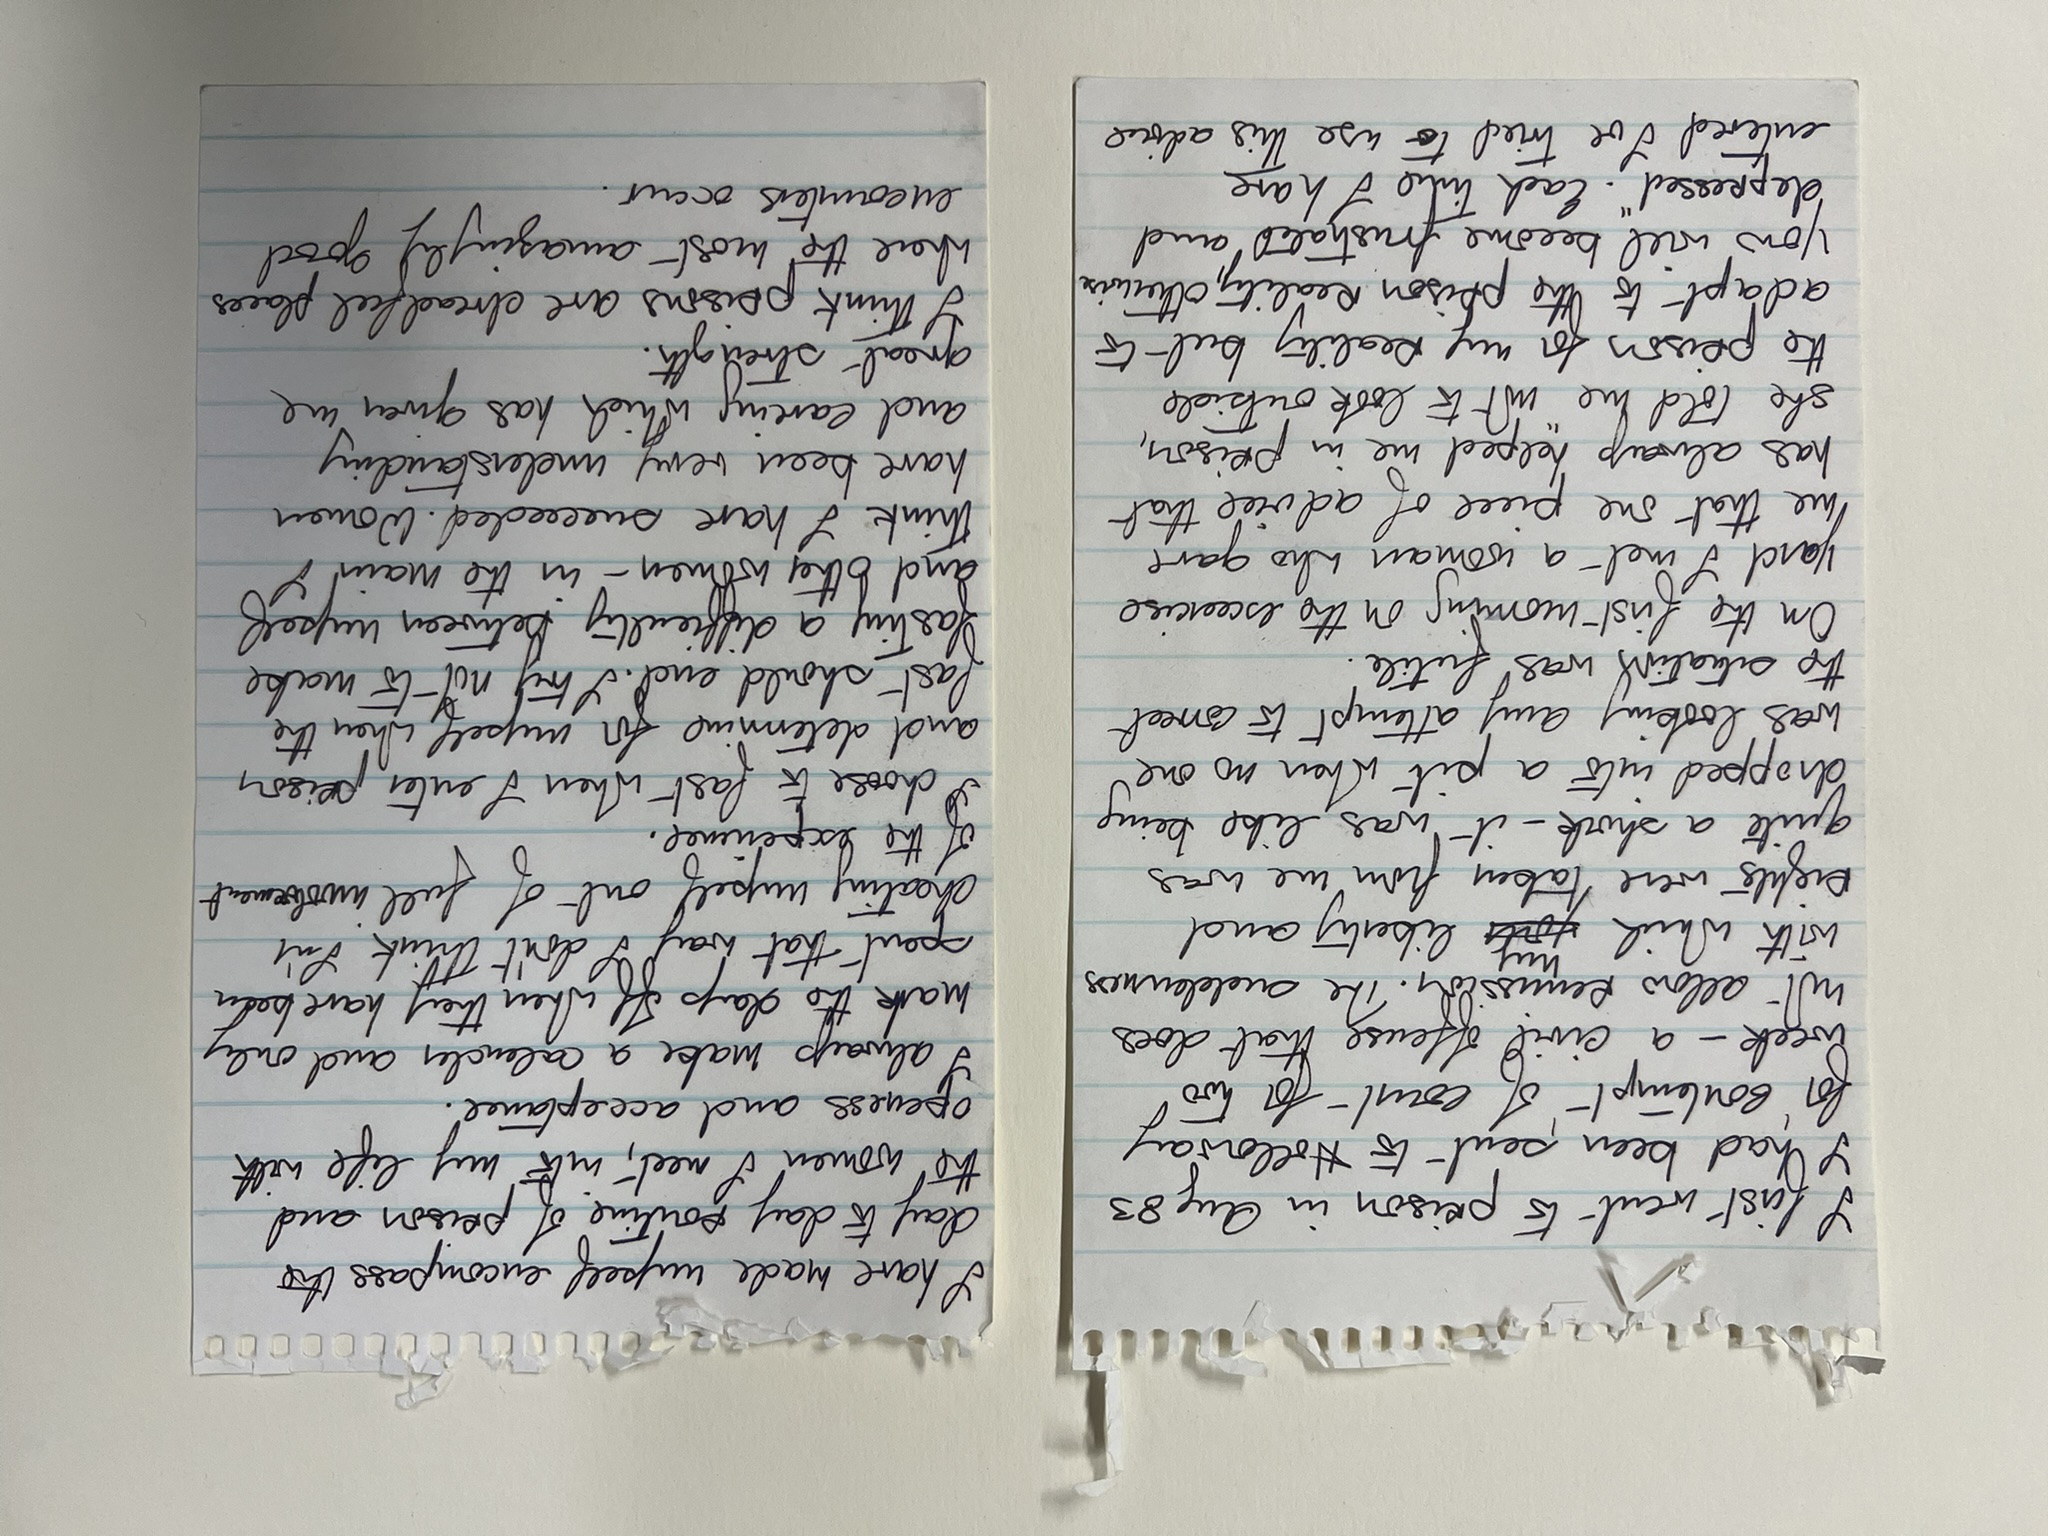 I first went to prison in Aug 83
I had been sent to Holloway
for contempt of court for two
week – a civil offense that does
not allow remission. The suddenness
with which my liberty and
rights were taken from me was
quite a shock – it was like being
dropped into a pit when no one
was looking any attempt to correct
the situation was futile.
On the first morning on the excercise
yard I met a woman who gave
me that one piece of advice that
has always helped me in prison,
she told me "not to look outside
the prison for my reality but to
adapt to the prison reality, otherwise
you will become frustrated and
depressed". Each time I have
entered I've tried to use this advice
I have made myself encompass the
day to day routine of prison and
the women I meet, into my life with
openess and acceptance.
I always make a calender and only
mark the days off when they have been
spent that way I don't think I'm
cheating myself out of full involvement
of the experience.
I choose to fast when I enter prison
and determine for myself when the
fast should end. I try not to make
fasting a difficulty between myself
and other women – in the main I
think I have succeeded. Women
have been very understanding
and careing which has given me
great strength.
I think prisons are dreadful places
where the most amazingly good
encounters occur.